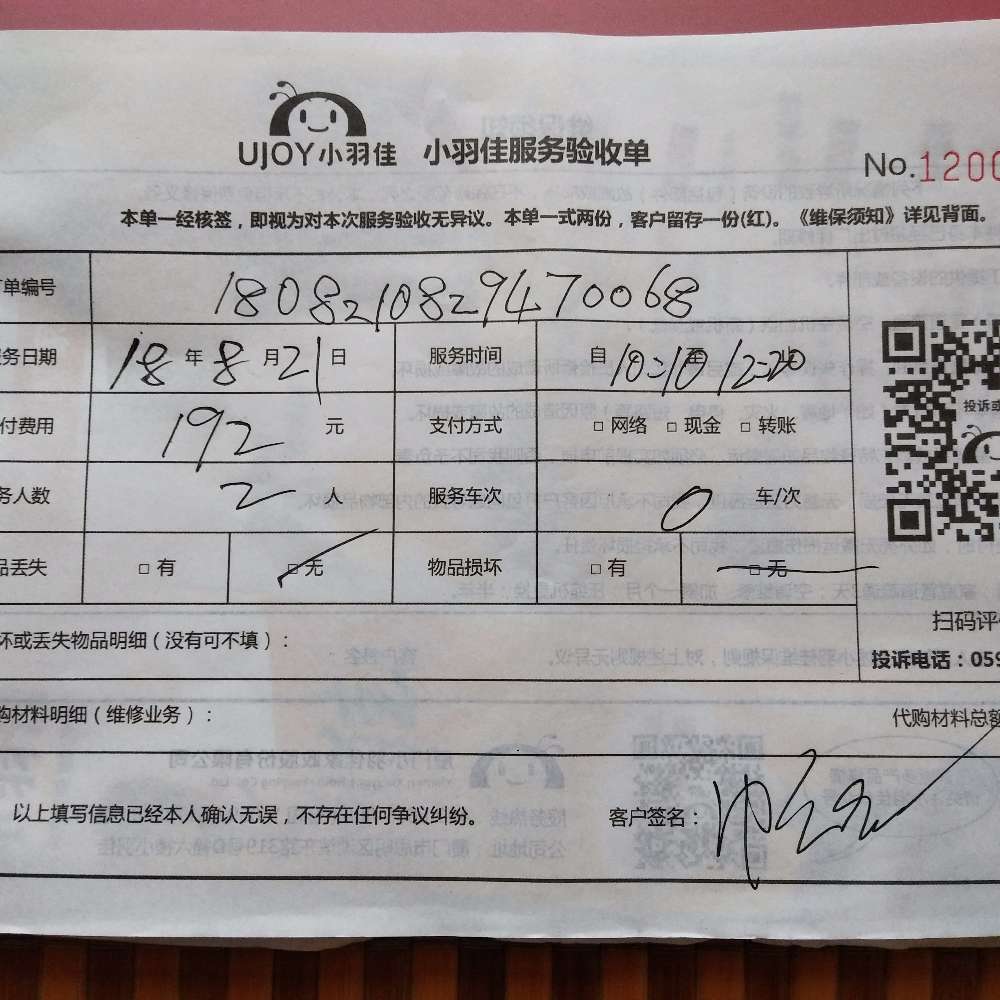 UJOY小羽佳 小羽佳服务验收单
No.1200
本单一经核签，即视为对本次服务验收无异议。本单一式两份，客户留存一份(红)。《维保须知》详见背面。
单编号 180821082947 0068
务日期 18 年 8 月 21 日 服务时间 自 10:10 12:20
付费用 192 元 支付方式 □ 网络 □ 现金 □ 转账
务人数 2 人 服务车次 0 车/次
品丢失 □ 有 □ 无 物品损坏 □ 有 □ 无
投诉或
扫码评
坏或丢失物品明细（没有可不填）：
投诉电话：059
购材料明细（维修业务）：
代购材料总额
以上填写信息已经本人确认无误，不存在任何争议纠纷。 客户签名：